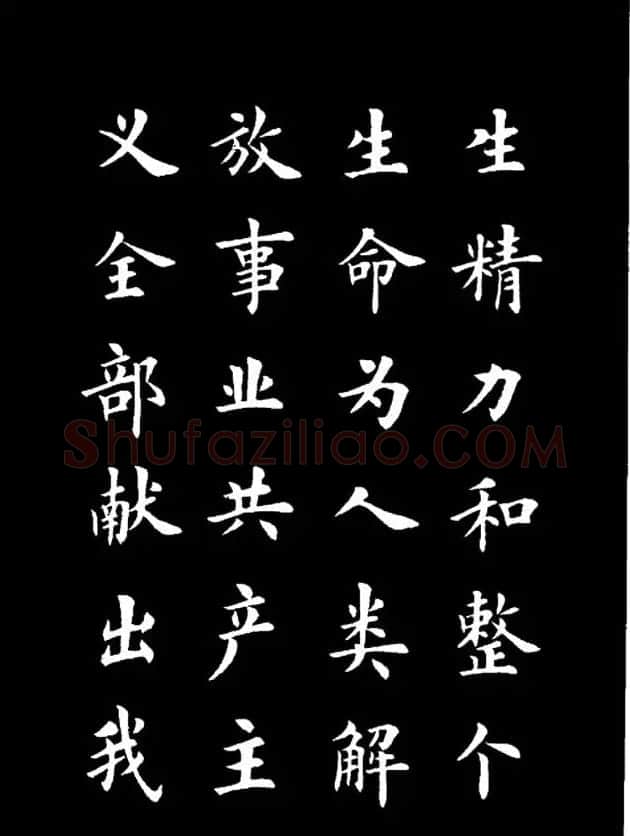 生精力和整个
生命为人类解
放事业共产主
义全部献出我
Shufaziliao.COM